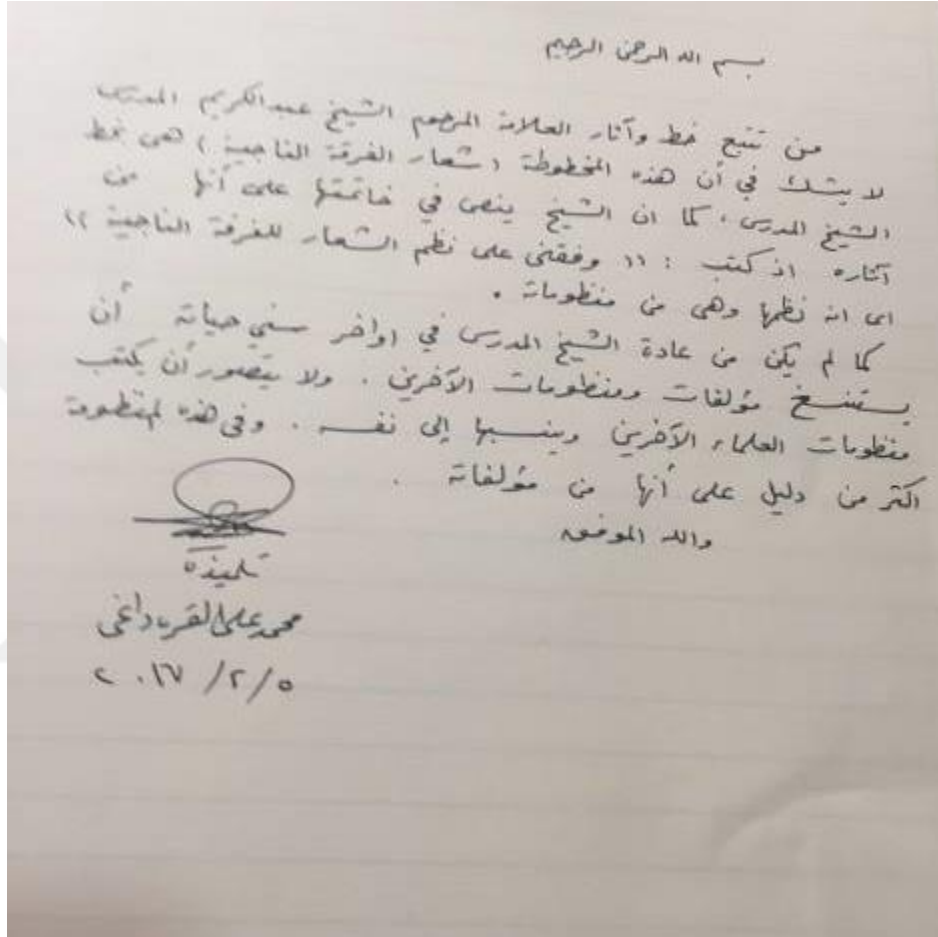 بسم الله الرحمن الرحيم
من تتبع خط وآثار العلامة المرحوم الشيخ عبدالكريم المدرس
لا يشك في أن هذه المخطوطة (شعار الفرقة الناجية) هي بخط
الشيخ المدرس، كما ان الشيخ ينص في خاتمتها على أنها من
آثاره اذ كتب : (( وفقني على نظم الشعار للفرقة الناجية ))
اى انه نظمها وهى من منظوماته .
كما لم يكن من عادة الشيخ المدرس في اواخر سني حياته أن
يستنسخ مؤلفات ومنظومات الآخرين . ولا يتصور أن يكتب
منظومات العلماء الآخرين وينسبها إلى نفسه . وفى هذه المنظومة
اكثر من دليل على أنها من مؤلفاته .
والله الموفق
تلميذه
محمد على القرداغى
٢٠١٧/٢/٥